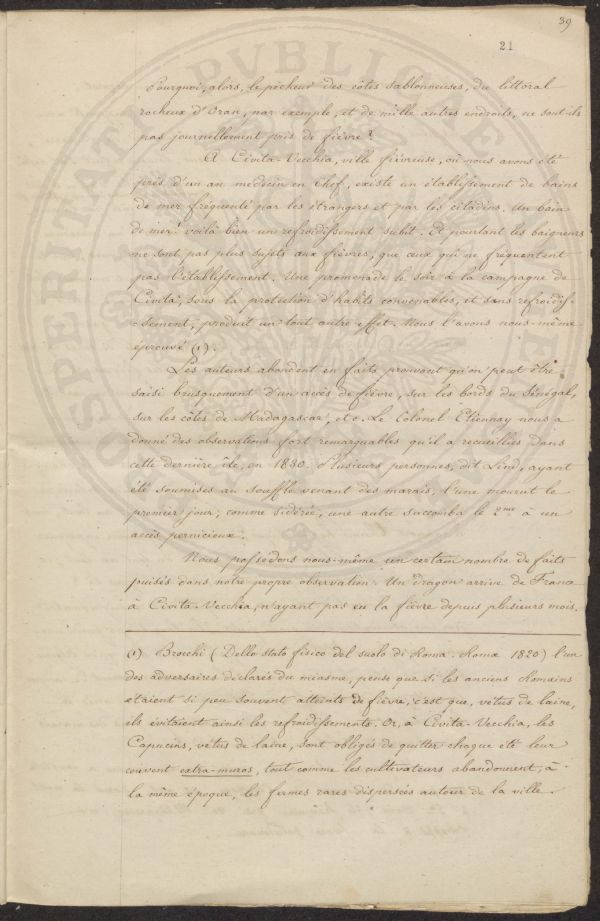 39
21
Pourquoi, alors, le pêcheur des côtes sablonneuses, du littoral
rocheux d'Oran, par exemple, et de mille autres endroits, ne sont-ils
pas journellement pris de fièvre?
A Civita-Vecchia, ville fiévreuse, où nous avons été
près d'un an médecin en Chef, existe un établissement de bains
de mer fréquenté par les étrangers et par les citadins. Un bain
de mer! voilà bien un refroidissement subit. Et pourtant les baigneurs
ne sont pas plus sujets aux fièvres, que ceux qui ne fréquentent
pas l'établissement. Une promenade le soir à la campagne de
Civita, sous la protection d'habits convenables, et sans refroidis-
-sement, produit un tout autre effet. Nous l'avons nous-même
éprouvé (1).
Les auteurs abondent en faits prouvant qu'on peut être
saisi brusquement d'un accès de fièvre, sur les bords du Sénégal,
sur les côtes de Madagascar, etc. Le Colonel Etiennay nous a
donné des observations fort remarquables qu'il a recueillies dans
cette dernière île, en 1830. Plusieurs personnes, dit Lind, ayant
été soumises au souffle venant des marais, l'une mourut le
premier jour, comme sidérée, une autre succomba le 2me à un
accès pernicieux.
Nous possédons nous-même un certain nombre de faits
puisés dans notre propre observation. Un dragon arrive de France
à Civita-Vecchia, n'ayant pas eu la fièvre depuis plusieurs mois.
(1) Brocchi (Dello stato fisico del suolo di Roma. Romæ 1820) l'un
des adversaires déclarés du miasme, pense que si les anciens Romains
étaient si peu souvent atteints de fièvre, c'est que, vêtus de laine,
ils évitaient ainsi les refroidissements. Or, à Civita-Vecchia, les
Capucins, vêtus de laine, sont obligés de quitter chaque été leur
couvent extra-muros, tout comme les cultivateurs abandonnent, à
la même époque, les fermes rares dispersées autour de la ville.